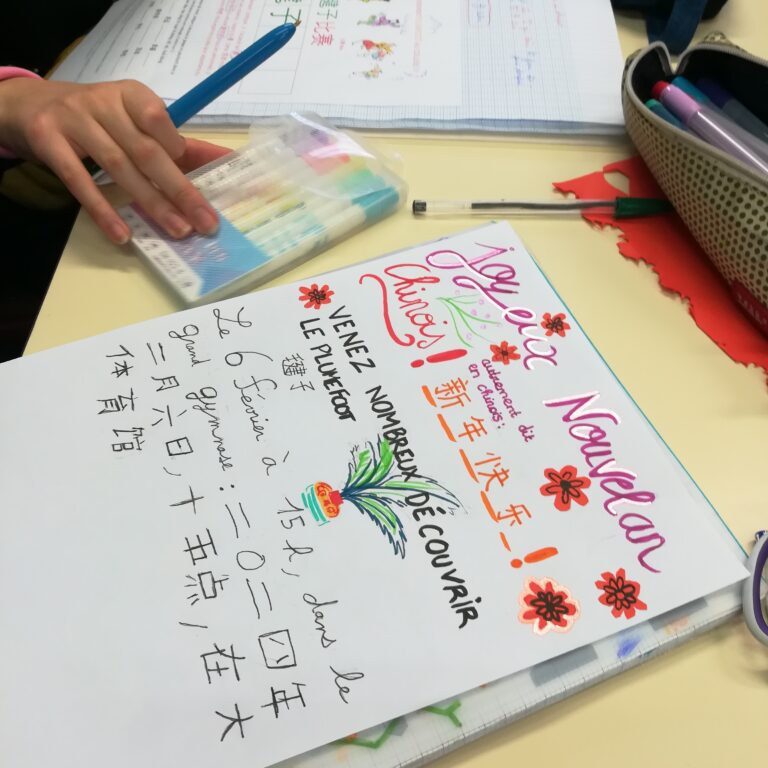 joyeux Nouvel an
Chinois !
autrement dit
en chinois :
新年快乐!
VENEZ NOMBREUX DÉCOUVRIR
LE PLUMEFOOT
毽子
Le 6 février à 15 h, dans le
grand gymnase : 二〇二四年
二月六日, 十五点, 在大
体育馆
子比赛